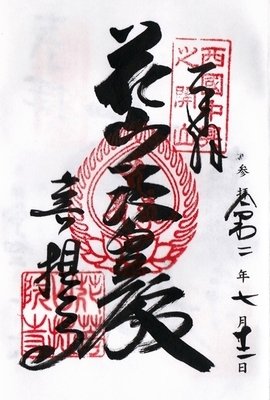 奉拝
西國中興
之開山
花山法皇殿
菩提寺
参拝 令和二年七月十二日